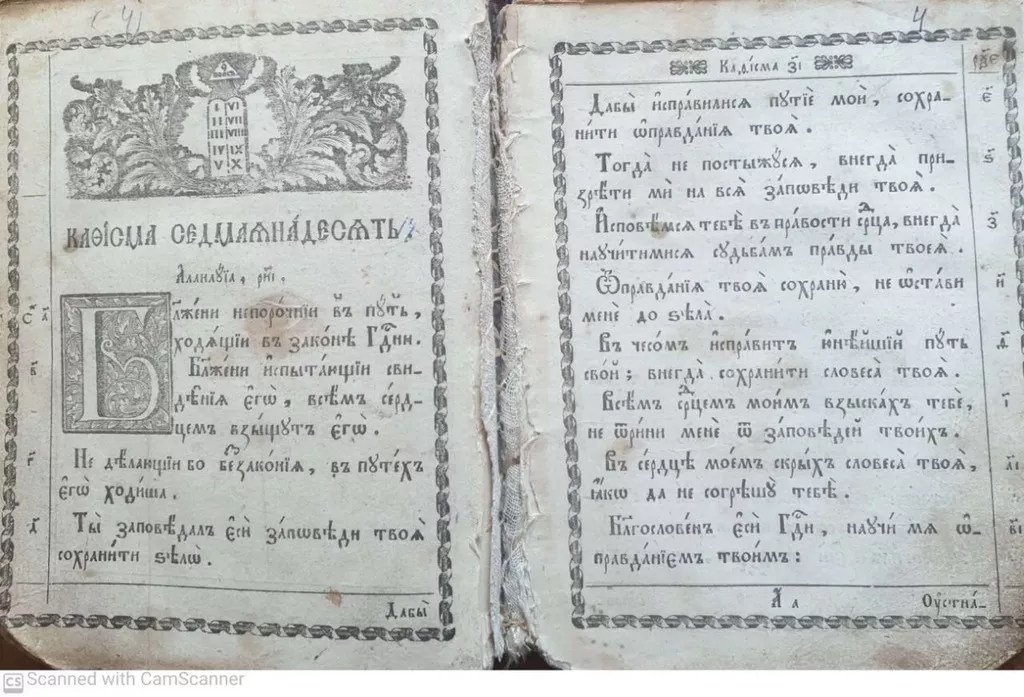 4
I VI
II VII
III VIII
IV IX
V X
КАѲІСМА СЕДМАЯНА́ДЕСЯТЬ.
Аллилꙋ́їа, рн҃і,
Бл҃же́ни непоро́чнїи въ пꙋ́ть,
ходѧ́щїи въ зако́нѣ Гдⷭ҇ни.
Бл҃же́ни и҆спыта́ющїи сви-
дѣ́нїя є҆гѡ̀, всѣ́мъ се́рд-
цемъ взы́щꙋтъ є҆гѡ̀.
Не дѣ́лающїи бо беззако́нїя, въ пꙋте́хъ
є҆гѡ̀ ходи́ша.
Ты̀ заповѣ́далъ є҆сѝ за́пѡвѣди твоѧ̀
сохрани́ти ѕѣлѡ̀.
а҃
в҃
г҃
д҃
Дабы̀
4
Каѳі́сма з҃і
Дабы̀ и҆спра́вилися пꙋтїѐ моѝ, сохра-
ни́ти ѡ҆правда́нїя твоѧ̀.
Тогда̀ не постыжꙋ́ся, внегда̀ при-
зрѣ́ти мѝ на всѧ̀ за́пѡвѣди твоѧ̀.
И҆сповѣ́мся тебѣ̀ въ пра́вости срⷣца, внегда̀
наꙋчи́тимися сꙋдьба́мъ пра́вды твоеѧ̀.
Ѡ҆правда́нїя твоѧ̀ сохраню̀, не ѡ҆ста́ви
менѐ до ѕѣла̀.
Въ чесо́мъ и҆спра́витъ ю҆нѣ́йшїй пꙋ́ть
сво́й; внегда̀ сохрани́ти словеса̀ твоѧ̀.
Всѣ́мъ срⷣцемъ мои́мъ взыска́хъ тебѐ,
не ѿри́ни менѐ ѿ за́повѣдей твои́хъ.
Въ се́рдцѣ мое́мъ скры́хъ словеса̀ твоѧ̀,
ꙗ҆́кѡ да не согрѣшꙋ̀ тебѣ̀.
Блгⷭ҇ословенъ є҆сѝ Гдⷭ҇и, наꙋчи́ мя ѡ҆-
правда́нїємъ твои̑мъ:
є҃
ѕ҃
з҃
и҃
ѳ҃
і҃
а҃і
в҃і
А҃ а
Оу҆стна-
CS Scanned with CamScanner